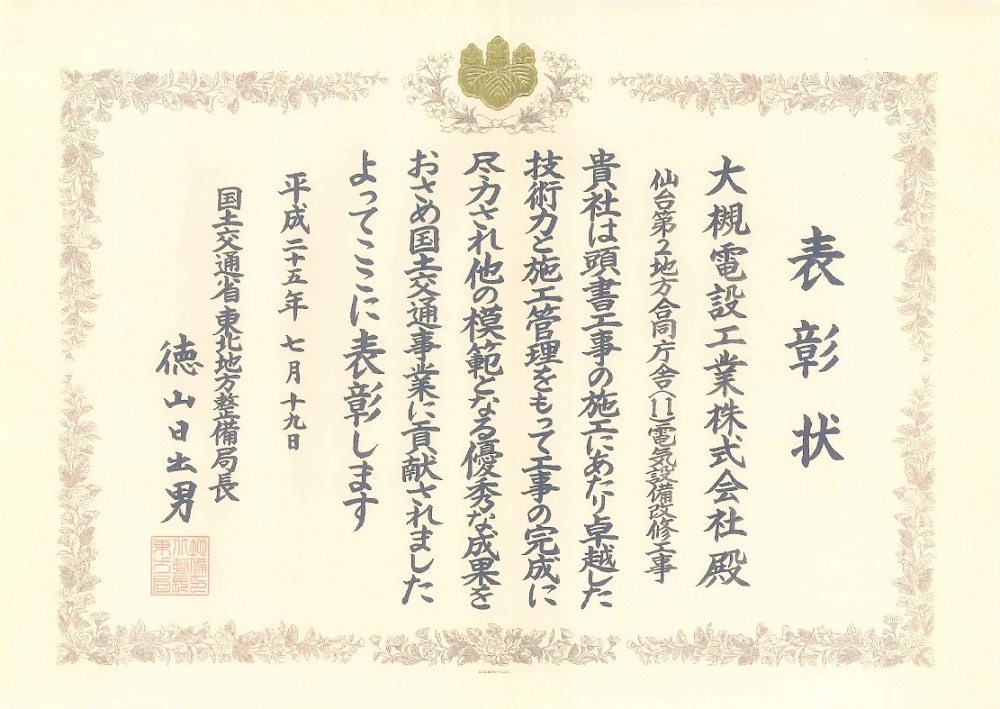 表彰状
大槻電設工業株式会社殿
仙台第2地方合同庁舎(11)電気設備改修工事
貴社は頭書工事の施工にあたり卓越した
技術力と施工管理をもって工事の完成に
尽力され他の模範となる優秀な成果を
おさめ国土交通事業に貢献されました
よってここに表彰します
平成二十五年七月十九日
国土交通省東北地方整備局長
徳山日出男